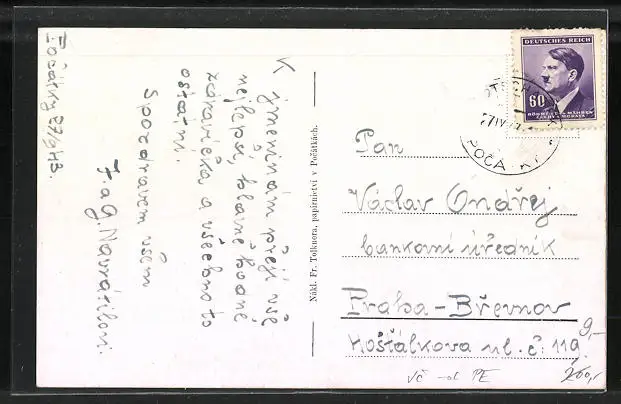 Počátky 27/9 43
K jmeninám přeji vše
nejlepší, hlavně hodně
zdravíčka a všechno to
ostatní.
S pozdravem všem
J. a G. Navrátilovi
Nákl. Fr. Tolknera, papírnictví v Počátkách.
DEUTSCHES REICH
60
BÖHMEN u. MÄHREN
ČECHY a MORAVA
Pan
Václav Ondřej
bankovní úředník
Praha-Břevnov
Hošťálkova ul. č. 119
9,-
vč PE